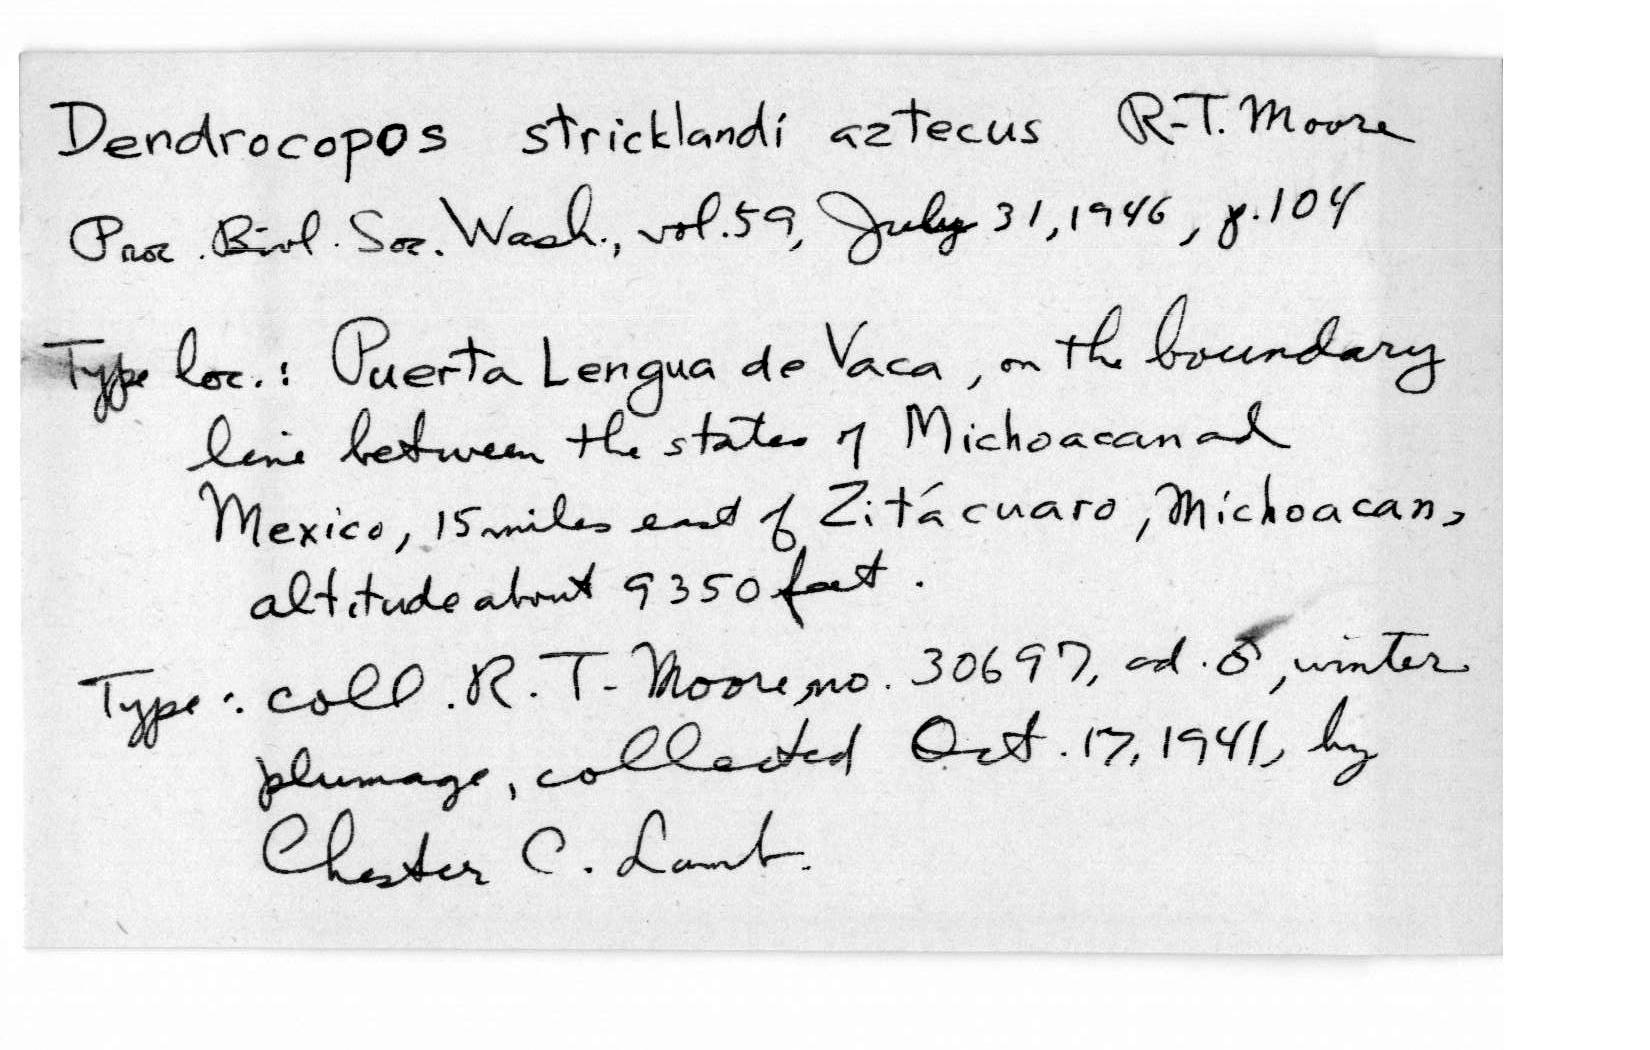 Dendrocopos stricklandi aztecus R.T. Moore
Proc. Biol. Soc. Wash., vol. 59, July 31, 1946, p. 104
Type loc.: Puerta Lengua de Vaca, on the boundary
line between the states of Michoacan and
Mexico, 15 miles east of Zitácuaro, Michoacan,
altitude about 9350 feet.
Type: coll. R. T. Moore, no. 30697, ad. ♂, winter
plumage, collected Oct. 17, 1941, by
Chester C. Lamb.